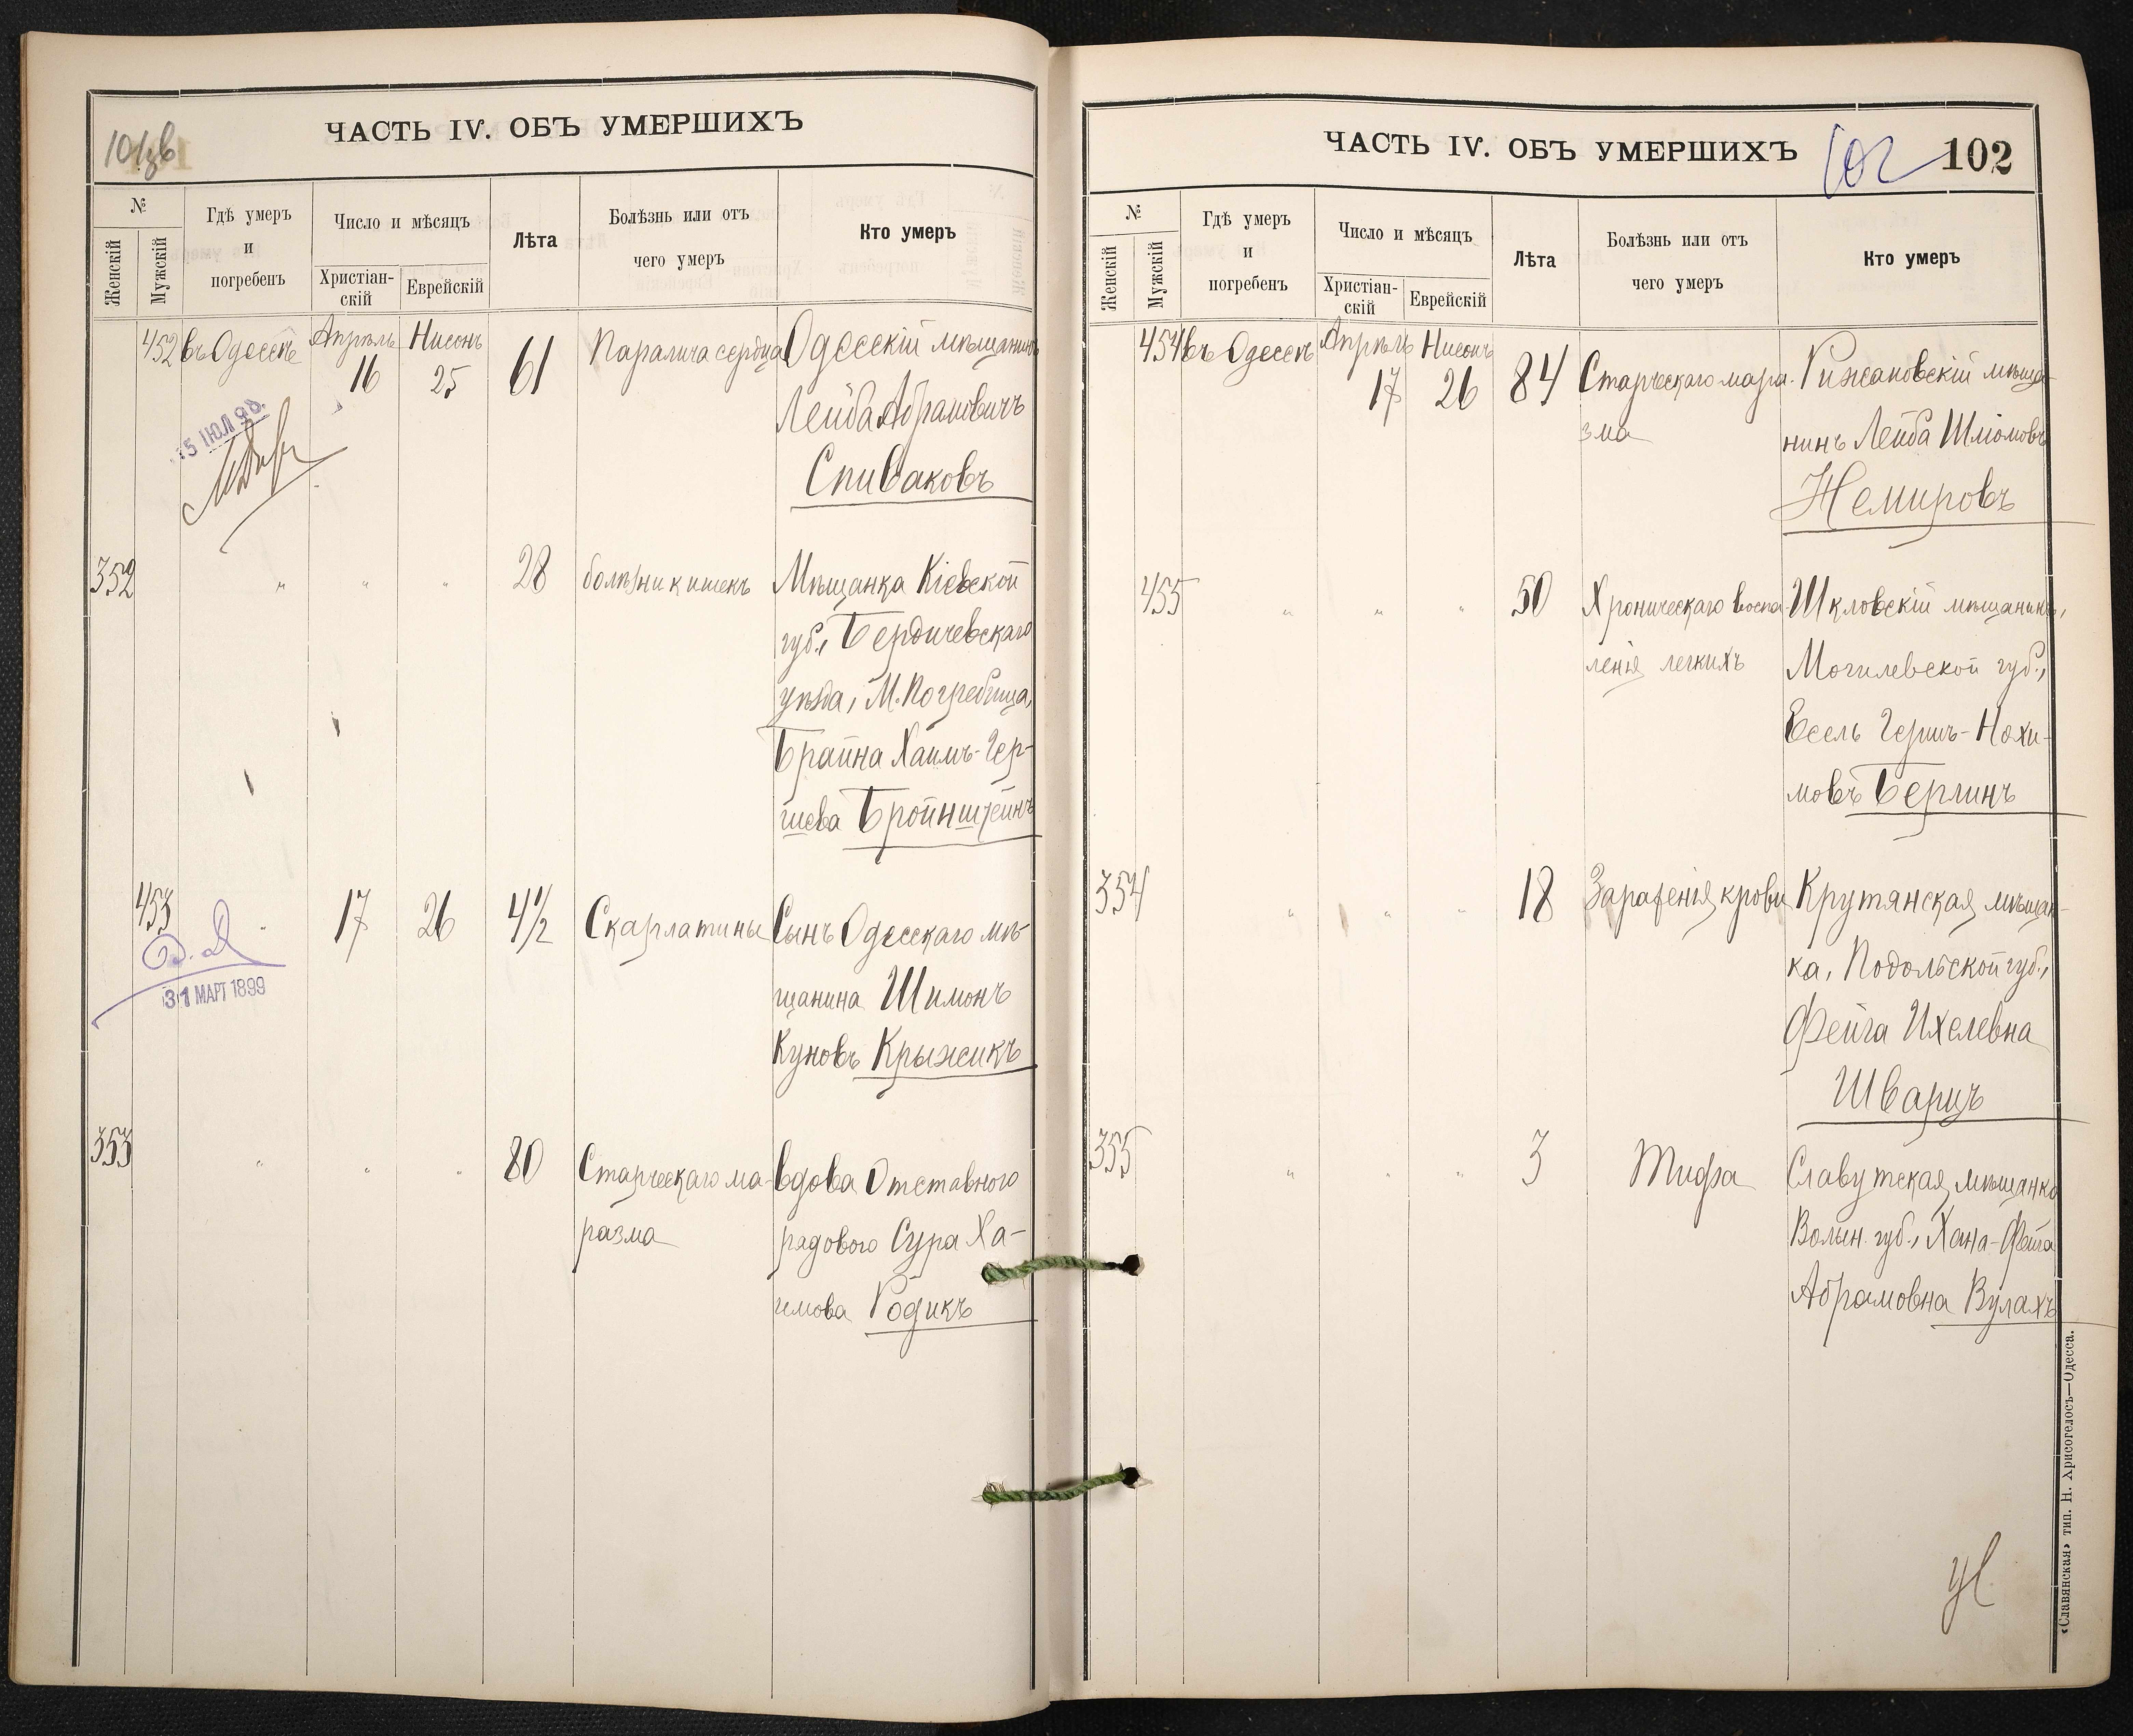 101 об
ЧАСТЬ IV. ОБЪ УМЕРШИХЪ
№
Женскій
Мужскій
Гдѣ умеръ
и
погребенъ
Число и мѣсяцъ
Христіан-
скій
Еврейскій
Лѣта
Болѣзнь или отъ
чего умеръ
Кто умеръ
452 въ Одессѣ Апрѣль 16 Нисонъ 25 61 Паралича сердца Одесскій мѣщанинъ
Лейба Абрамовичъ
Спиваковъ
15 ІЮЛ 98.
352 " " " 28 болѣзни кишекъ Мѣщанка Кіевской
губ., Бердичевскаго
уѣзда, М. Погребища,
Брайна Хаимъ-Гер-
шева Бройнштейнъ
453 " 17 26 4½ Скарлатины Сынъ Одесскаго мѣ-
щанина Шимонъ
Куновъ Крыжикъ
31 МАРТ 1899
353 " " " 80 Старческаго ма- вдова Отставного
разма рядового Сура Ха-
имова Родикъ
ЧАСТЬ IV. ОБЪ УМЕРШИХЪ
102 102
№
Женскій
Мужскій
Гдѣ умеръ
и
погребенъ
Число и мѣсяцъ
Христіан-
скій
Еврейскій
Лѣта
Болѣзнь или отъ
чего умеръ
Кто умеръ
454 въ Одессѣ Апрѣль 17 Нисонъ 26 84 Старческаго мара- Рижановскій мѣща-
зма нинъ Лейба Шліомовъ
Немировъ
455 " " " 50 Хроническаго воспа- Шкловскій мѣщанинъ,
ленія легкихъ Могилевской губ.,
Есель Гершъ-Нохи-
мовъ Берлинъ
354 " " " 18 Зараженія крови Крутянская мѣщан-
ка, Подольской губ.,
Фейга Ихелевна
Шварцъ
355 " " " 3 Тифа Славутская мѣщанка
Волын. губ., Хана-Фейга
Абрамовна Вулахъ
«Славянская» тип. Н. Хрисогелосъ—Одесса.